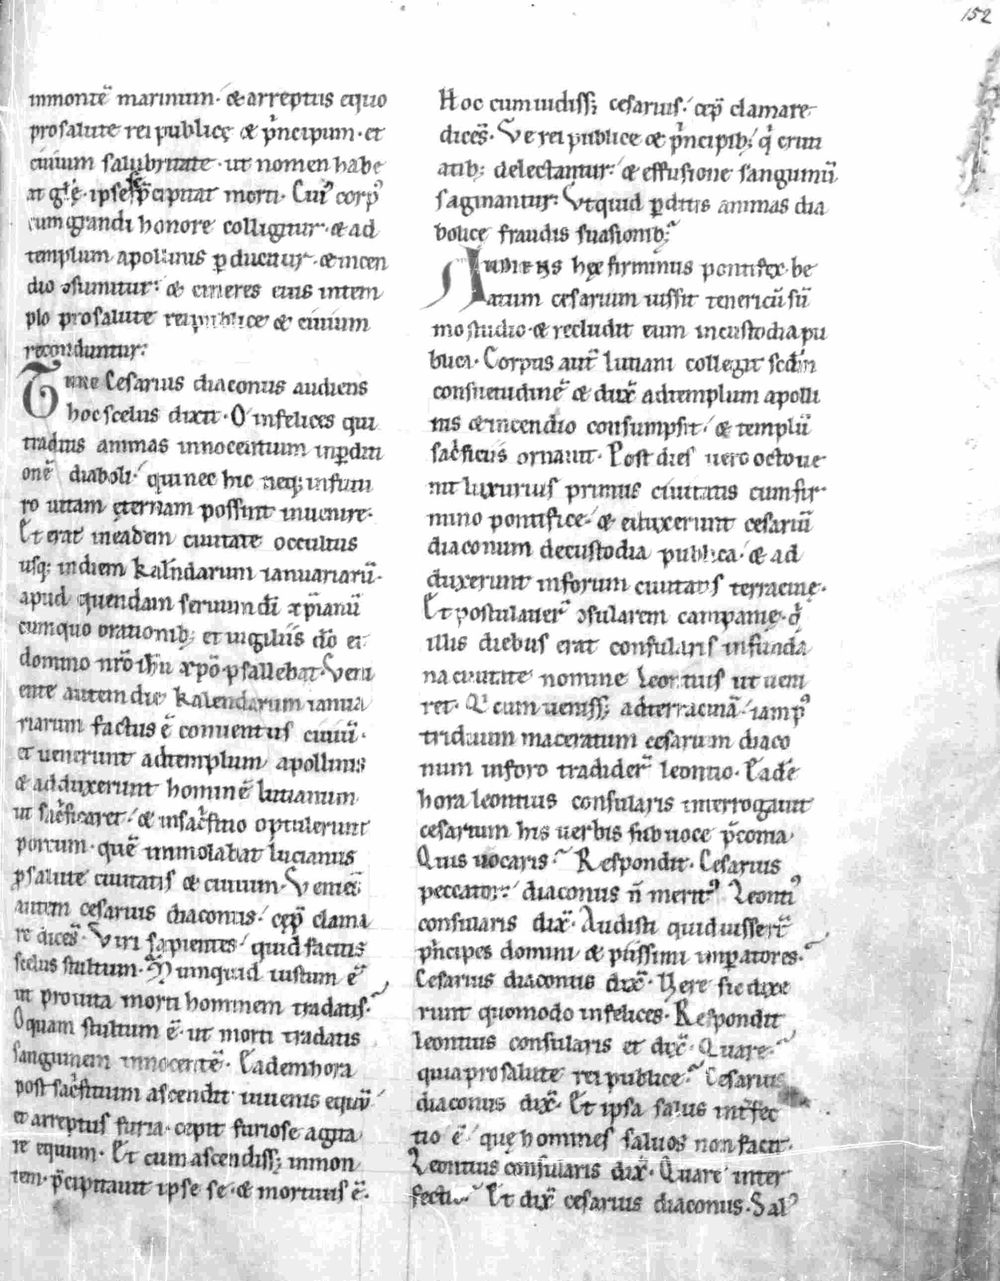 152
inmontē marinum· & arreptus equo
prosalute rei publicę & p̾ncipum· et
ciuium salubritate· ut nomen habe
at gl̄ę· ipse p̄cipitat morti· Cui᷒ corp᷒
cum grandi honore colligitur· & ad
templum apollinis ꝑducitur· & incen
dio ꝯsumitur· & cineres eius intem
plo prosalute rei publice & ciuium
reconduntur·
Tunc Cesarius diaconus audiens
hoc scelus dixit· O infelices qui
traditis animas innocentium inꝑditi
onē diaboli· qui nec hic neq; infutu
ro uitam ęternam possint inuenire·
Et erat in eadem ciuitate occultus
usq; indiem kalendarum ianuariarū·
apud quendam seruum dī xp̄ianū
cum quo orationib; et uigiliis dō et
domino nr̄o ihū xp̄o psallebat· Veni
ente autem die kalendarum ianua
riarum factus ē conuentus ciuiū·
et uenerunt adtemplum apollinis
& adduxerunt hominē lucianum
ut sac̾ficaret· & insac̾ficio optulerunt
porcum· quē immolabat lucianus
ꝓsalute ciuitatis & ciuium· Veniēs
autem cesarius diaconus· cep̄ clama
re dicēs· Viri sapientes quid factus
scelus stultum· Numquid iustum ē
ut prouita morti hominem tradatis·
O quam stultum ē· ut morti tradatis
sanguinem innocentē· Eadem hora
post sac̾ficium ascendit iuuenis equū
et arreptus furia· cepit furiose agita
re equum· Et cum ascendiss; inmon
tem· p̄cipitauit ipse se· & mortuus ē·
Hoc cum uidiss; cesarius· cep̄ clamare
dicēs· Ve rei publice & p̾ncipib; q̾ crim
atib; delectantur· & effusione sanguinū
saginantur· Vtquid ꝑditis animas dia
bolice fraudis suasionib;
Audiens hęc firminus pontifex· be
atum cesarium iussit teneri cū sū
mo studio· & recludit eum incustodia pu
blica· Corpus aut̄ luciani collegit scd̄m
consuetudinē & dux̄ adtemplum apolli
nis & incendio consumpsit· & templū
sac̾ficiis ornauit· Post dies uero octo ue
nit luxurius primus ciuitatis cum fir
mino pontifice· & eduxerunt cesariū
diaconum decustodia publica· & ad
duxerunt inforum ciuitatis terracinę·
Et postulauer̄ ꝯsularem campanię· q̾
illis diebus erat consularis infunda
na ciuitate nomine leontius ut ueni
ret· Q̾ cum ueniss; adterracinā· iam p᷒
triduum maceratum cesarium diaco
num inforo tradider̄ leontio· Eadē
hora leontius consularis interrogauit
cesarium his uerbis sub uoce p̄conia·
Quis uocaris· Respondit· Cesarius
peccator· diaconus n̄ merit᷒· Leonti᷒
consularis dix̄· Audisti quid iusserī
p̾ncipes domini & piissimi imꝑatores·
Cesarius diaconus dix̄· Here sic dixe
runt quomodo infelices· Respondit
leontius consularis et dix̄· Quare·
quia prosalute rei publice· Cesarius
diaconus dix̄· Et ipsa salus int̾fec
tio ē· quę homines saluos non facit·
Leontius consularis dix̄· Quare inter
fectio· Et dix̄ cesarius diaconus· Sal᷒